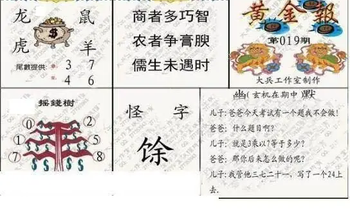 龙 鼠
虎 羊
尾數提供:3 4
7 6
商者多巧智
农者争膏腴
儒生未遇时
黄金報
第019期
大兵工作室制作
摇錢樹
0 1
2 8
5 7
怪 字
馀
(玄机在期中
儿子:爸爸今天考试有一个题我不会做!
爸爸:什么题目啊?
儿子:就是3来以7等于多少?
爸爸:那你后来怎么做的呢?
儿子:我管他三七二十一,写了一个24上
去.